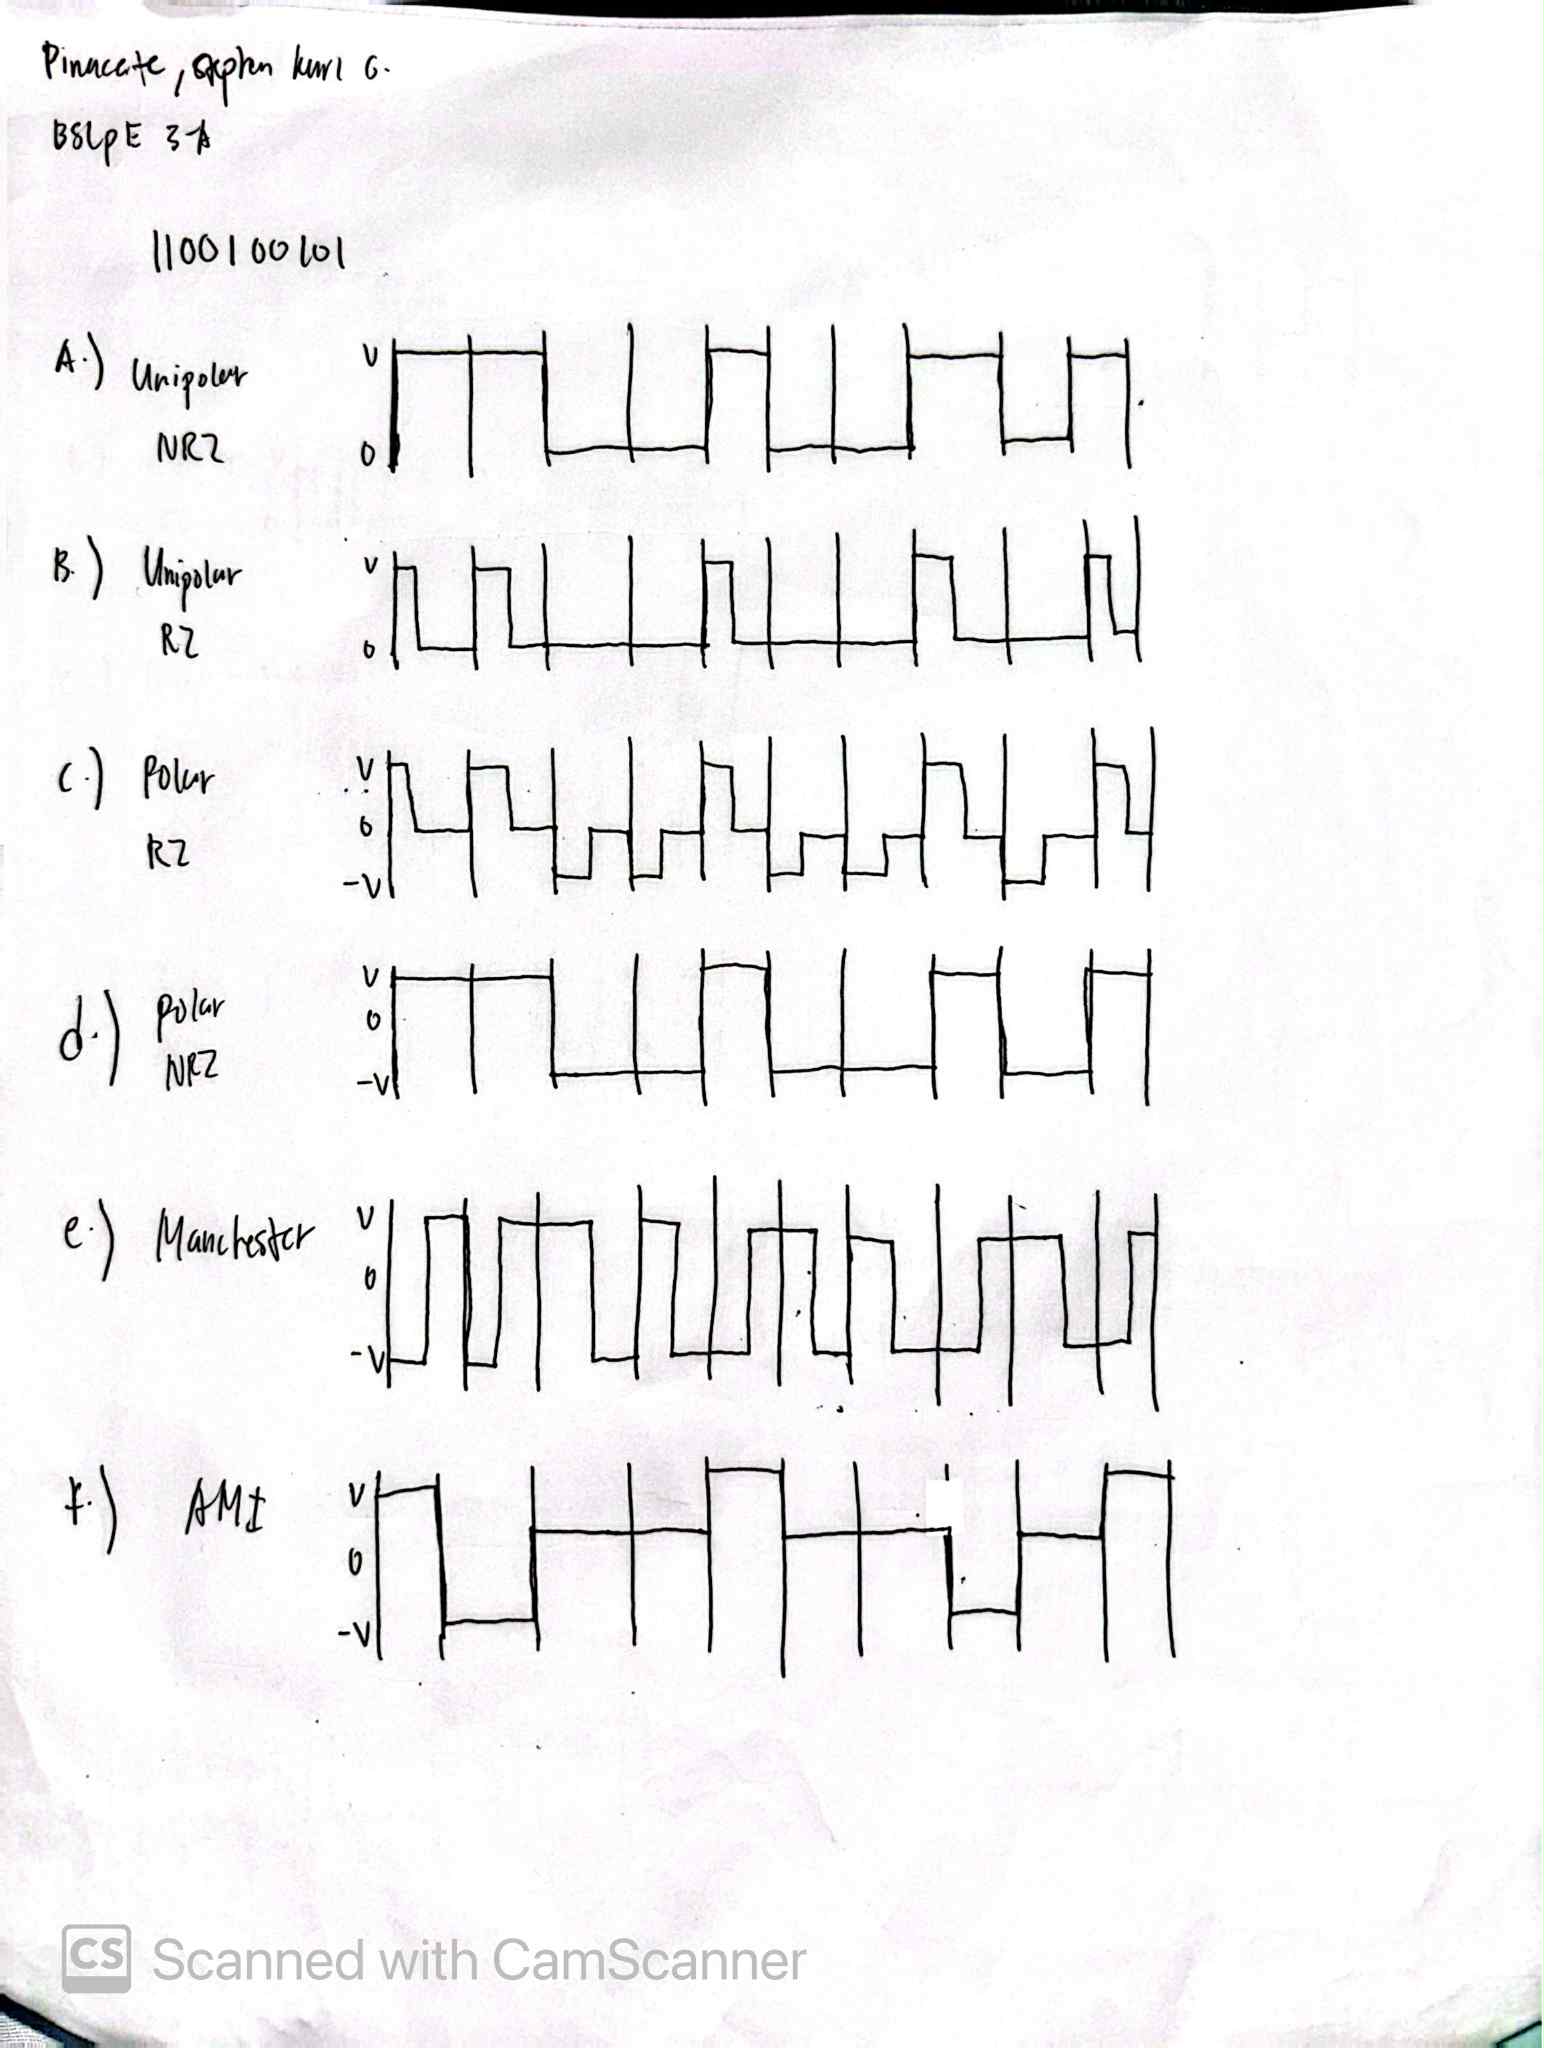 Pinacate, kurl G.
BSCpE 3-A
1100100101
A.) Unipolar
NRZ
V
0
B.) Unipolar
RZ
V
0
C.) Polar
RZ
V
0
-V
d.) Polar
NRZ
V
0
-V
e.) Manchester
V
0
-V
f.) AMI
V
0
-V
CS Scanned with CamScanner